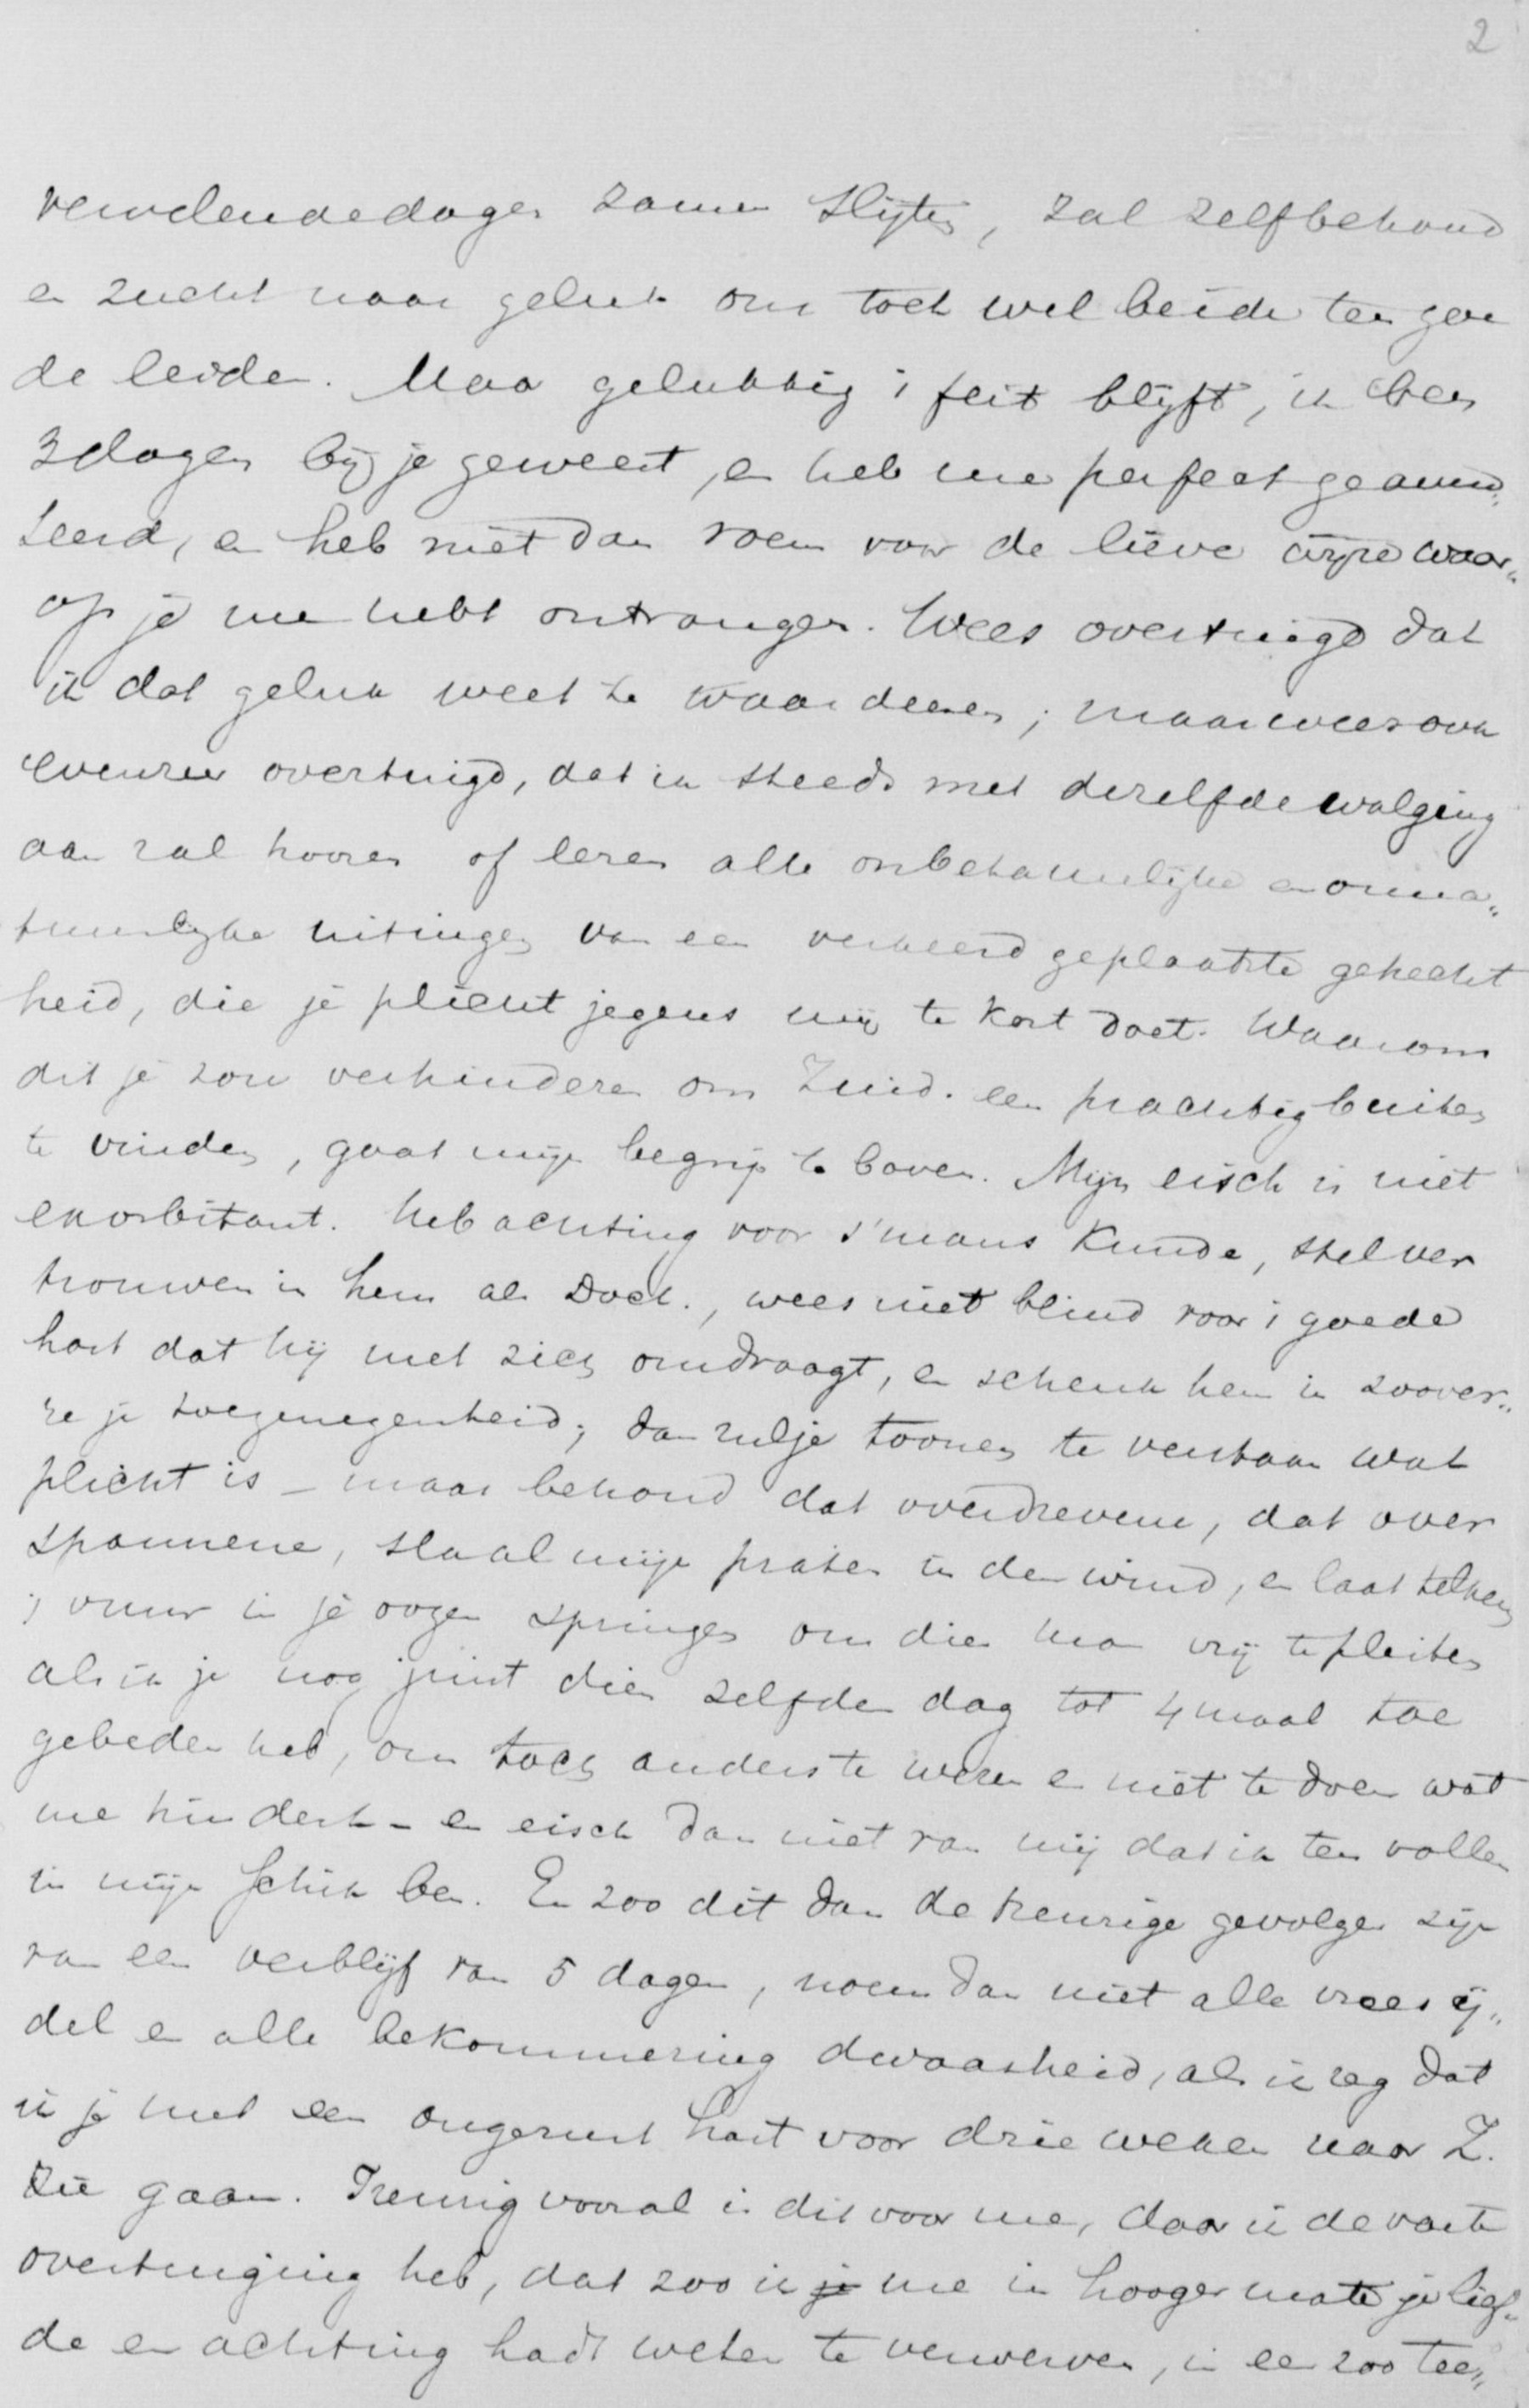 2
dagen zamen slijten, zal zelfbehoud
en zucht naar geluk ons toch wel beide ten goe
de leiden. Maar gelukkig 't feit blijft, ik ben
3 dagen bij je geweest, en heb me perfect geamu„
seerd, en heb niet dan roem voor de lieve wijze waar„
op je me hebt ontvangen. Wees overtuigd dat
ik dat geluk weet te waardeeren; maar wees ook
evenzeer overtuigd, dat ik steeds met dezelfde walging
aan zal hooren of lezen alle onbetamelijke en onna„
tuurlijke uitingen van een verkeerd geplaatste gehecht
heid, die je plicht jegens mij te kort doet. Waarom
dit je zou verhinderen om Zuid. een prachtig buiten
te vinden, gaat mijn begrip te boven. Mijn eisch is niet
exorbitant. Heb achting voor s'mans Kunde, stel ver
trouwen in hem als Doct., wees niet blind voor 't goede
hart dat hij met zich omdraagt, en schenk hem in zoover„
re je toegenegenheid; dan zul je toonen te verstaan wat
plicht is – maar behoud dat overdrevene, dat over
spannene, sla al mijn praten in den wind, en laat telkens
't vuur in je oogen springen om dien man vrij te pleiten
als ik je nog juist dien zelfden dag tot 4 maal toe
gebeden heb, om toch anders te wezen en niet te doen wat
me hindert – en eisch dan niet van mij dat ik ten vollen
in mijn schik ben. En zoo dit dan de treurige gevolgen zijn
van een verblijf van 5 dagen, noem dan niet alle vrees ij„
del en alle bekommering dwaasheid, als ik zeg dat
ik je met een ongerust hart voor drie weken naar Z.
zie gaan. Treurig vooral is dit voor me, daar ik de vaste
overtuiging heb, dat zoo ik je me in hooger mate je lief„
de en achting hadt weten te verwerven, in een zoo tee„